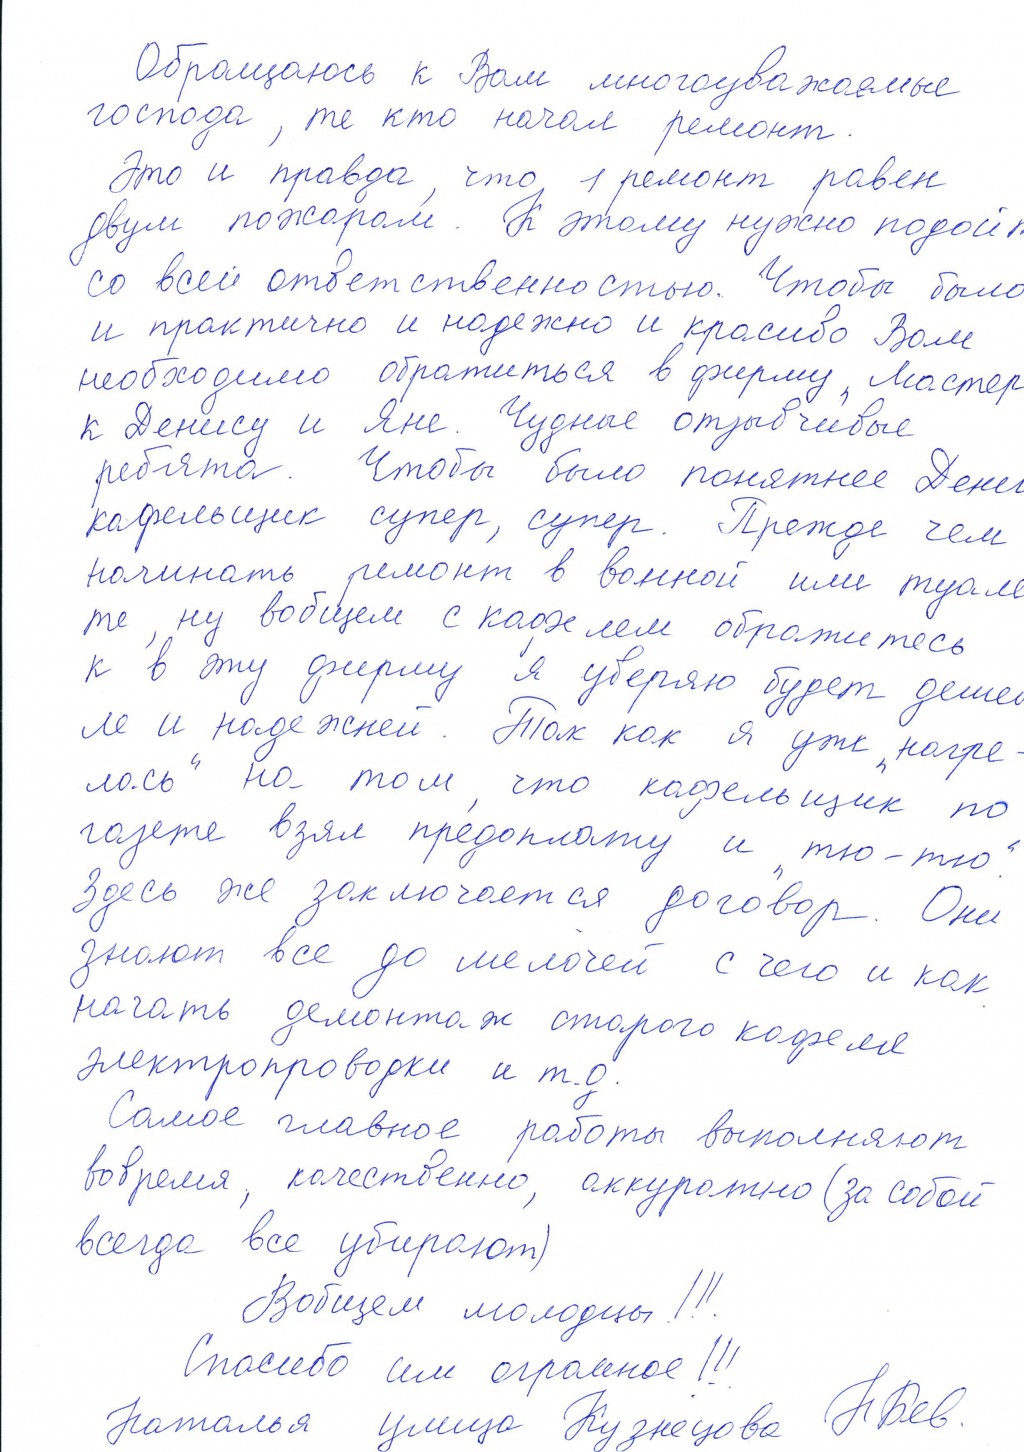 Обращаюсь к Вам многоуважаемые
господа, те кто начал ремонт.
Это и правда, что, 1 ремонт равен
двум пожарам. К этому нужно подойт
со всей ответственностью. Чтобы было
и практично и надежно и красиво Вам
необходимо обратиться в фирму „Мастер
к Денису и Яне. Чудные отзывчивые
ребята. Чтобы было понятнее Денис
кафельщик супер, супер. Прежде чем
начинать ремонт в ванной или туале
те, ну вобщем с кафелем обратитесь
к в эту фирму я уверяю будет дешев
ле и надежней. Так как я уже „нагре-
лась“ на том, что кафельщик по
газете взял предоплату и „тю-тю“.
Здесь же заключается договор. Они
знают все до мелочей с чего и как
начать демонтаж старого кафеля
электропроводки и т.д.
Самое главное работы выполняют
вовремя, качественно, аккуратно (за собой
всегда все убирают)
Вобщем молодцы!!!
Спасибо им огромное!!!
Наталья улица Кузнецова